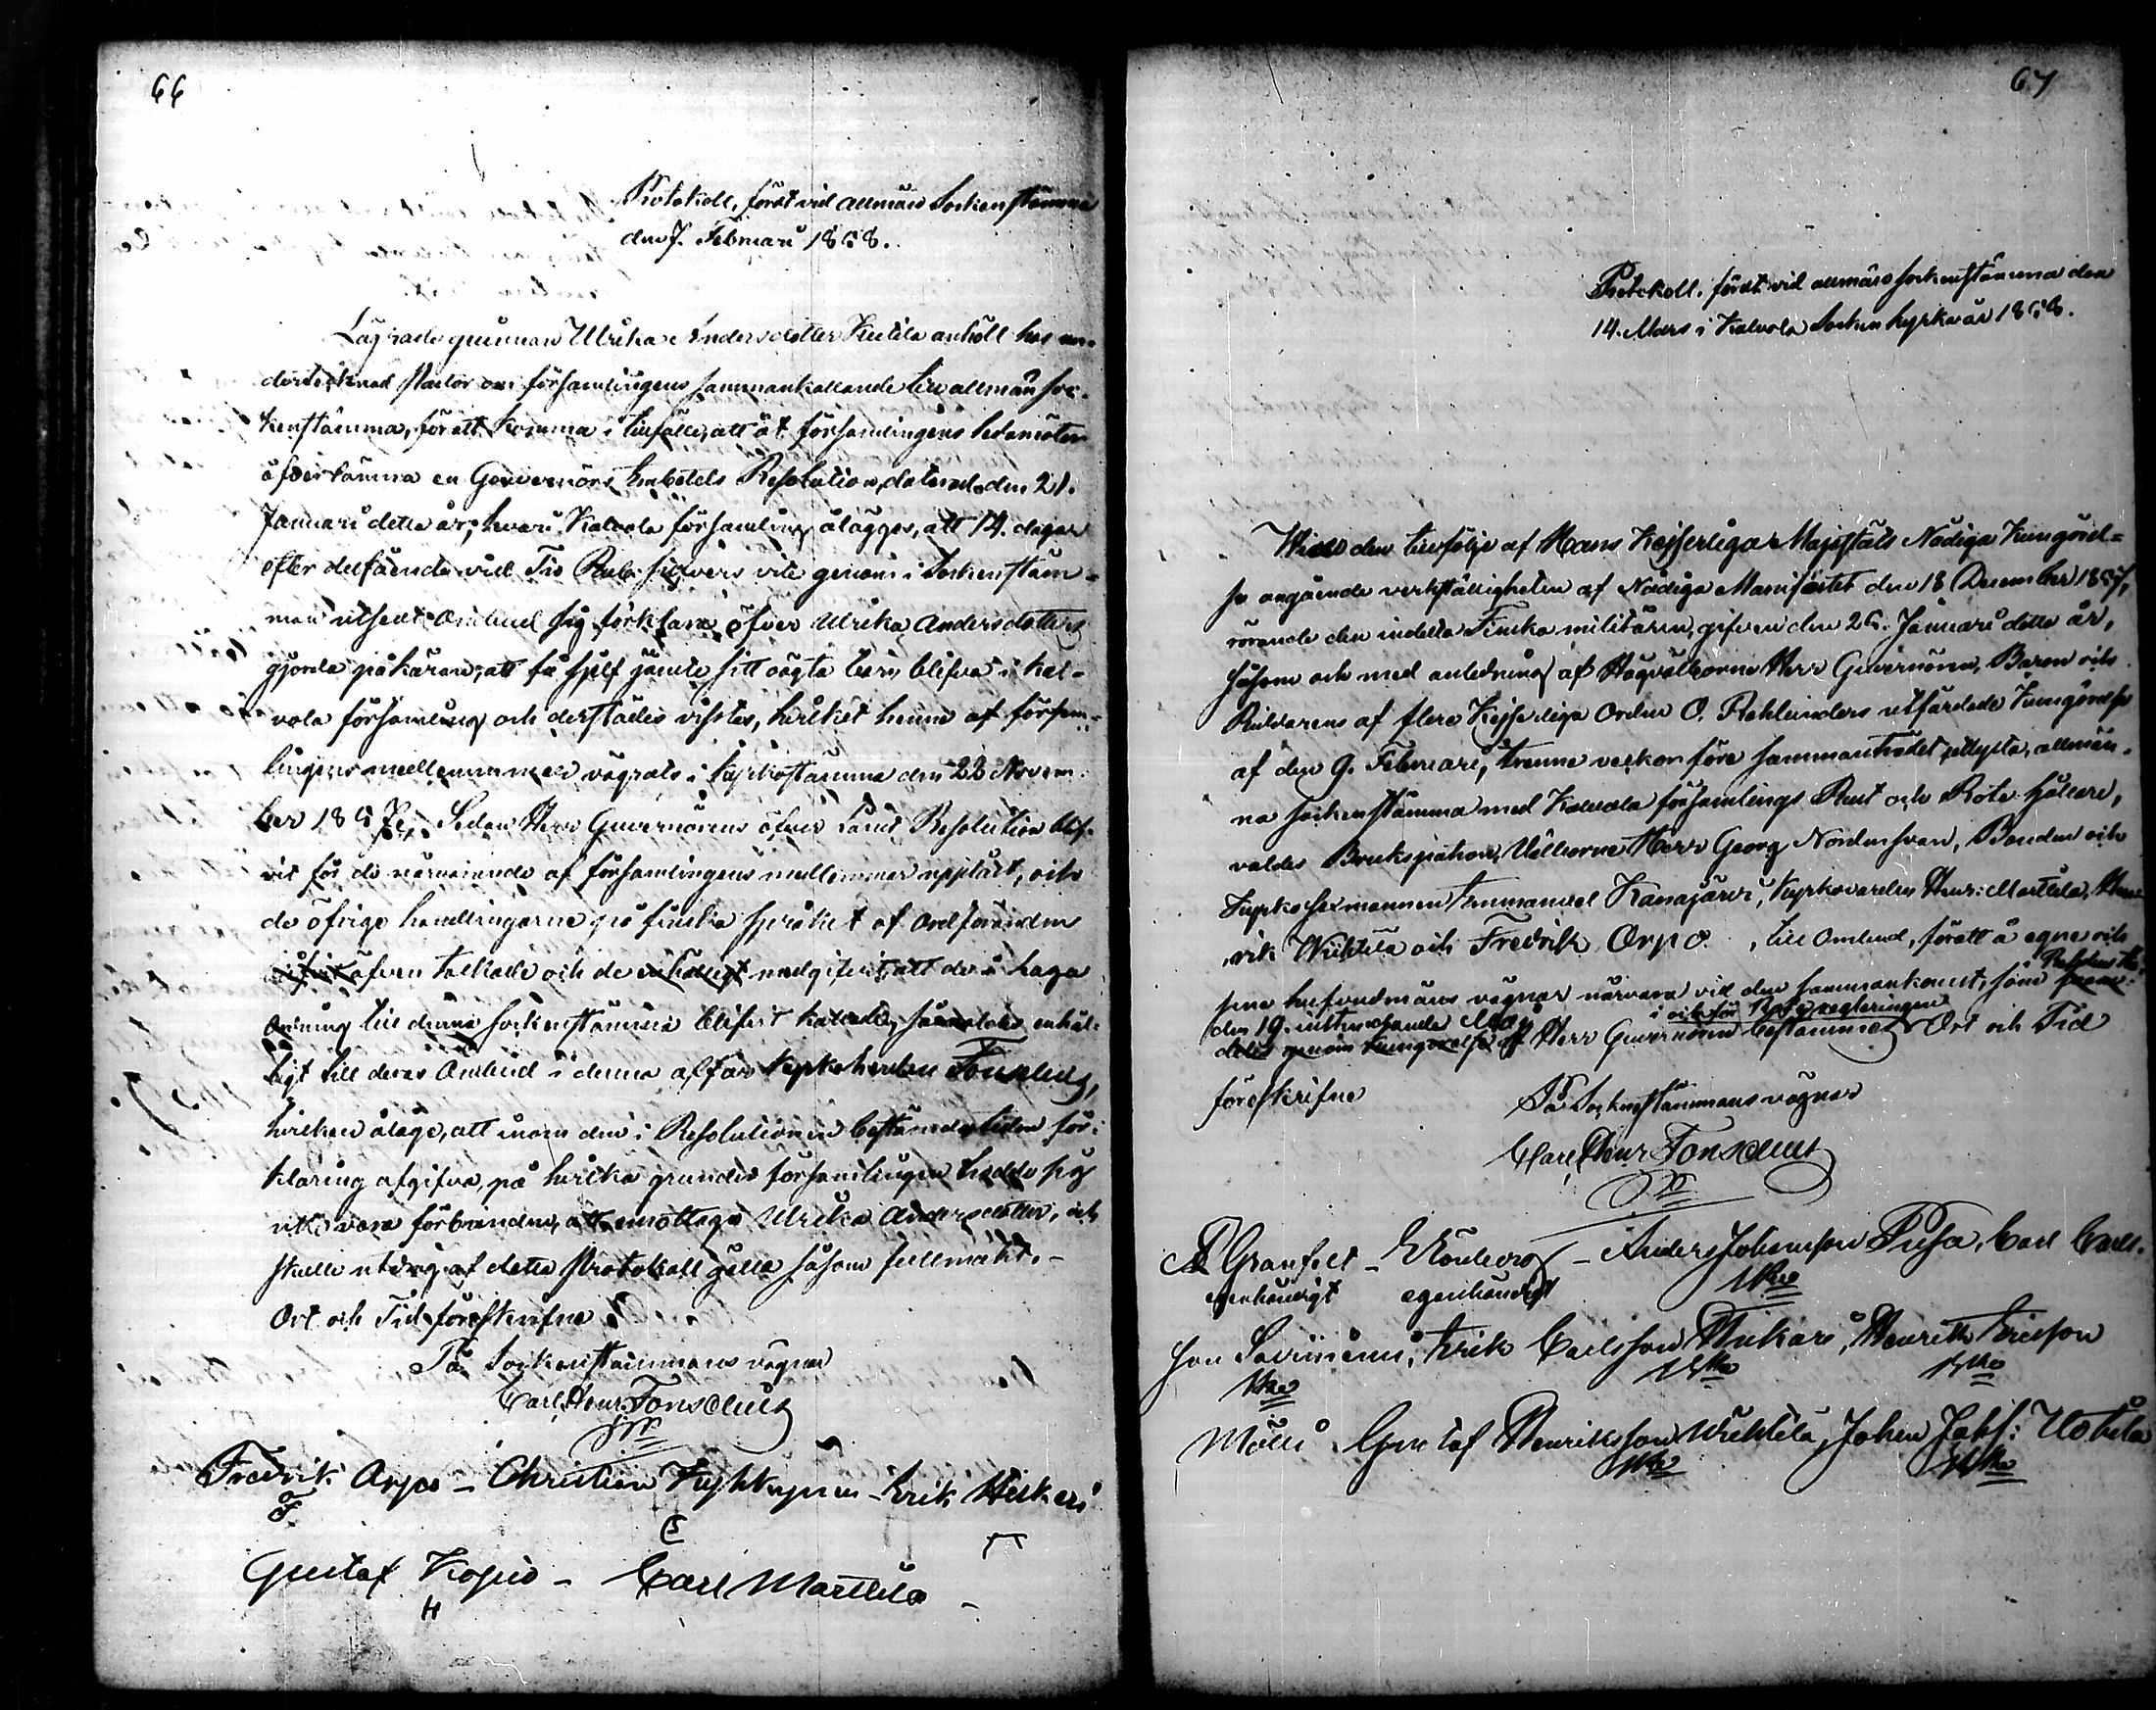 66
Protokoll, fördt vid allmän Sockenstämma
den 7. Februari 1858.
Lagrade qvinnan Ulrika Andersdotter Kutila anhöll hos un-
dertecknad Pastor om församlingens sammankallande till allmän soc-
kenstämma, för att komma i tillfälle, att åt församlingens ledamöter
öfverlämna en Gouvernörs Embetets Resolution, daterad den 21.
Januari detta år, hvari Kalvola församling ålägges, att 14. dagar
efter delfåendet vid Tio Rub. silfvers vite genom i Sockenstäm-
man utsedt Ombud sig förklara öfver Ulrika Andersdotters
gjorda påkäran, att få sjelf jämte sitt oägta barn blifva i Kal-
vola församling och derstädes vistas, hvilket henne af försam-
lingens medlemmar vägrats i Kyrkostämma den 22 Novem-
ber 1857. Sedan Herr Guvernörens öfver Länet Resolution blif-
vit för de närvarande af församlingens medlemmar uppläst, och
de öfrige handlingarne på finska språket af ordföranden
äfven tolkade och de medgifvit, att de i laga
ordning till denna sockenstämma blifvit kallade, enhäl-
ligt till deras Ombud i denna affär Kyrkoherden Fonselius,
hvilken ålåge, att inom den i Resolutionen bestämda tiden för-
klaring afgifva, på hvilka grunder församlingen trodde sig
icke vara förbunden, att emottaga Ulrika Andersdotter, och
skulle utdrag af detta Protokoll gälla såsom fullmakt. -
Ort och Tid föreskrifne
På Sockenstämmans vägnar
Carl Henr. Fonselius
Fredrik Arpo - Christian - Erik
F
Gustaf - Carl Marttila -
H
67
Protokoll, fördt vid allmän sockenstämma den
14. Mars i Kalvola Socken kyrka år 1858.
den till följe af Hans Kejserliga Majestäts Nådiga Kungörel-
se angående verkställigheten af Nådiga Manifestet den 18 December 1857,
rörande den indelta Finska militären, gifven den 25. Januari detta år,
såsom och med anledning af Högvälborne Herr Guvernören, Baron och
Riddarens af flere Kejserliga Orden O. Rehbinders utfärdade Kungörelse
af den 9. Februari, trenne veckor före sammanträdet utlysta, allmän-
na sockenstämma med Kalvola församlings Rust och Rote hållare,
valdes Brukspatron, Välborne Herr Georg Nordensvan, Bonden och
Kyrko sexmannen Emmanuel Kanajärvi, Kyrkovärden Henr: Marttila, Hen-
rik Wiktila och Fredrik Orpo, till Ombud, för att å egne och
sine hufvudmäns vägnar närvara vid den sammankomst, som
den 19. instundande Maj i och för Roteregleringen
Herr Guvernören bestämmer Ort och Tid
föreskrifne
På Sockenstämmans vägnar
Carl Henr. Fonselius
Granfelt - - Anders Johansson Pusa, Carl Carls-
egenhändigt egenhändigt
son Savimäeni, Erik Carlsson, Henrik Ericsson
Mölli Gustaf Henriksson Wiktila, Johan Jakf: Uotila